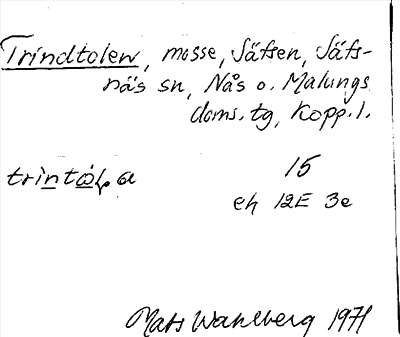 Trindtolen, mosse, Säfsen, Säfs-
näs sn, Nås o. Malungs
doms. tg, Kopp. l.
15
eh 12E 3e
Mats Wahlberg 1971